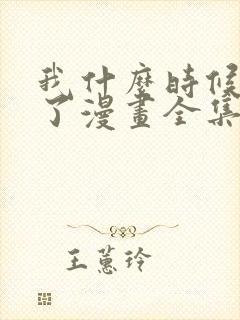 我什麼時候
了漫畫全集
王蕙玲